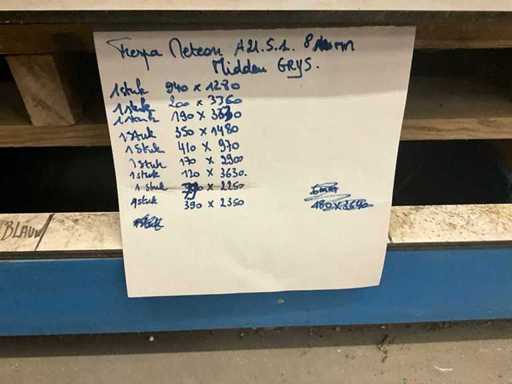 Trespa Meteon A21.5.1. 8 mm
Midden GRYS.
1 stuk 940 x 1280
1 stuk 200 x 3360
1 stuk 190 x
1 stuk 350 x 1480
1 stuk 410 x 970
1 stuk 170 x 2900
1 stuk 120 x 3630.
1 stuk x 2250
1 stuk 390 x 2350
BLAUW